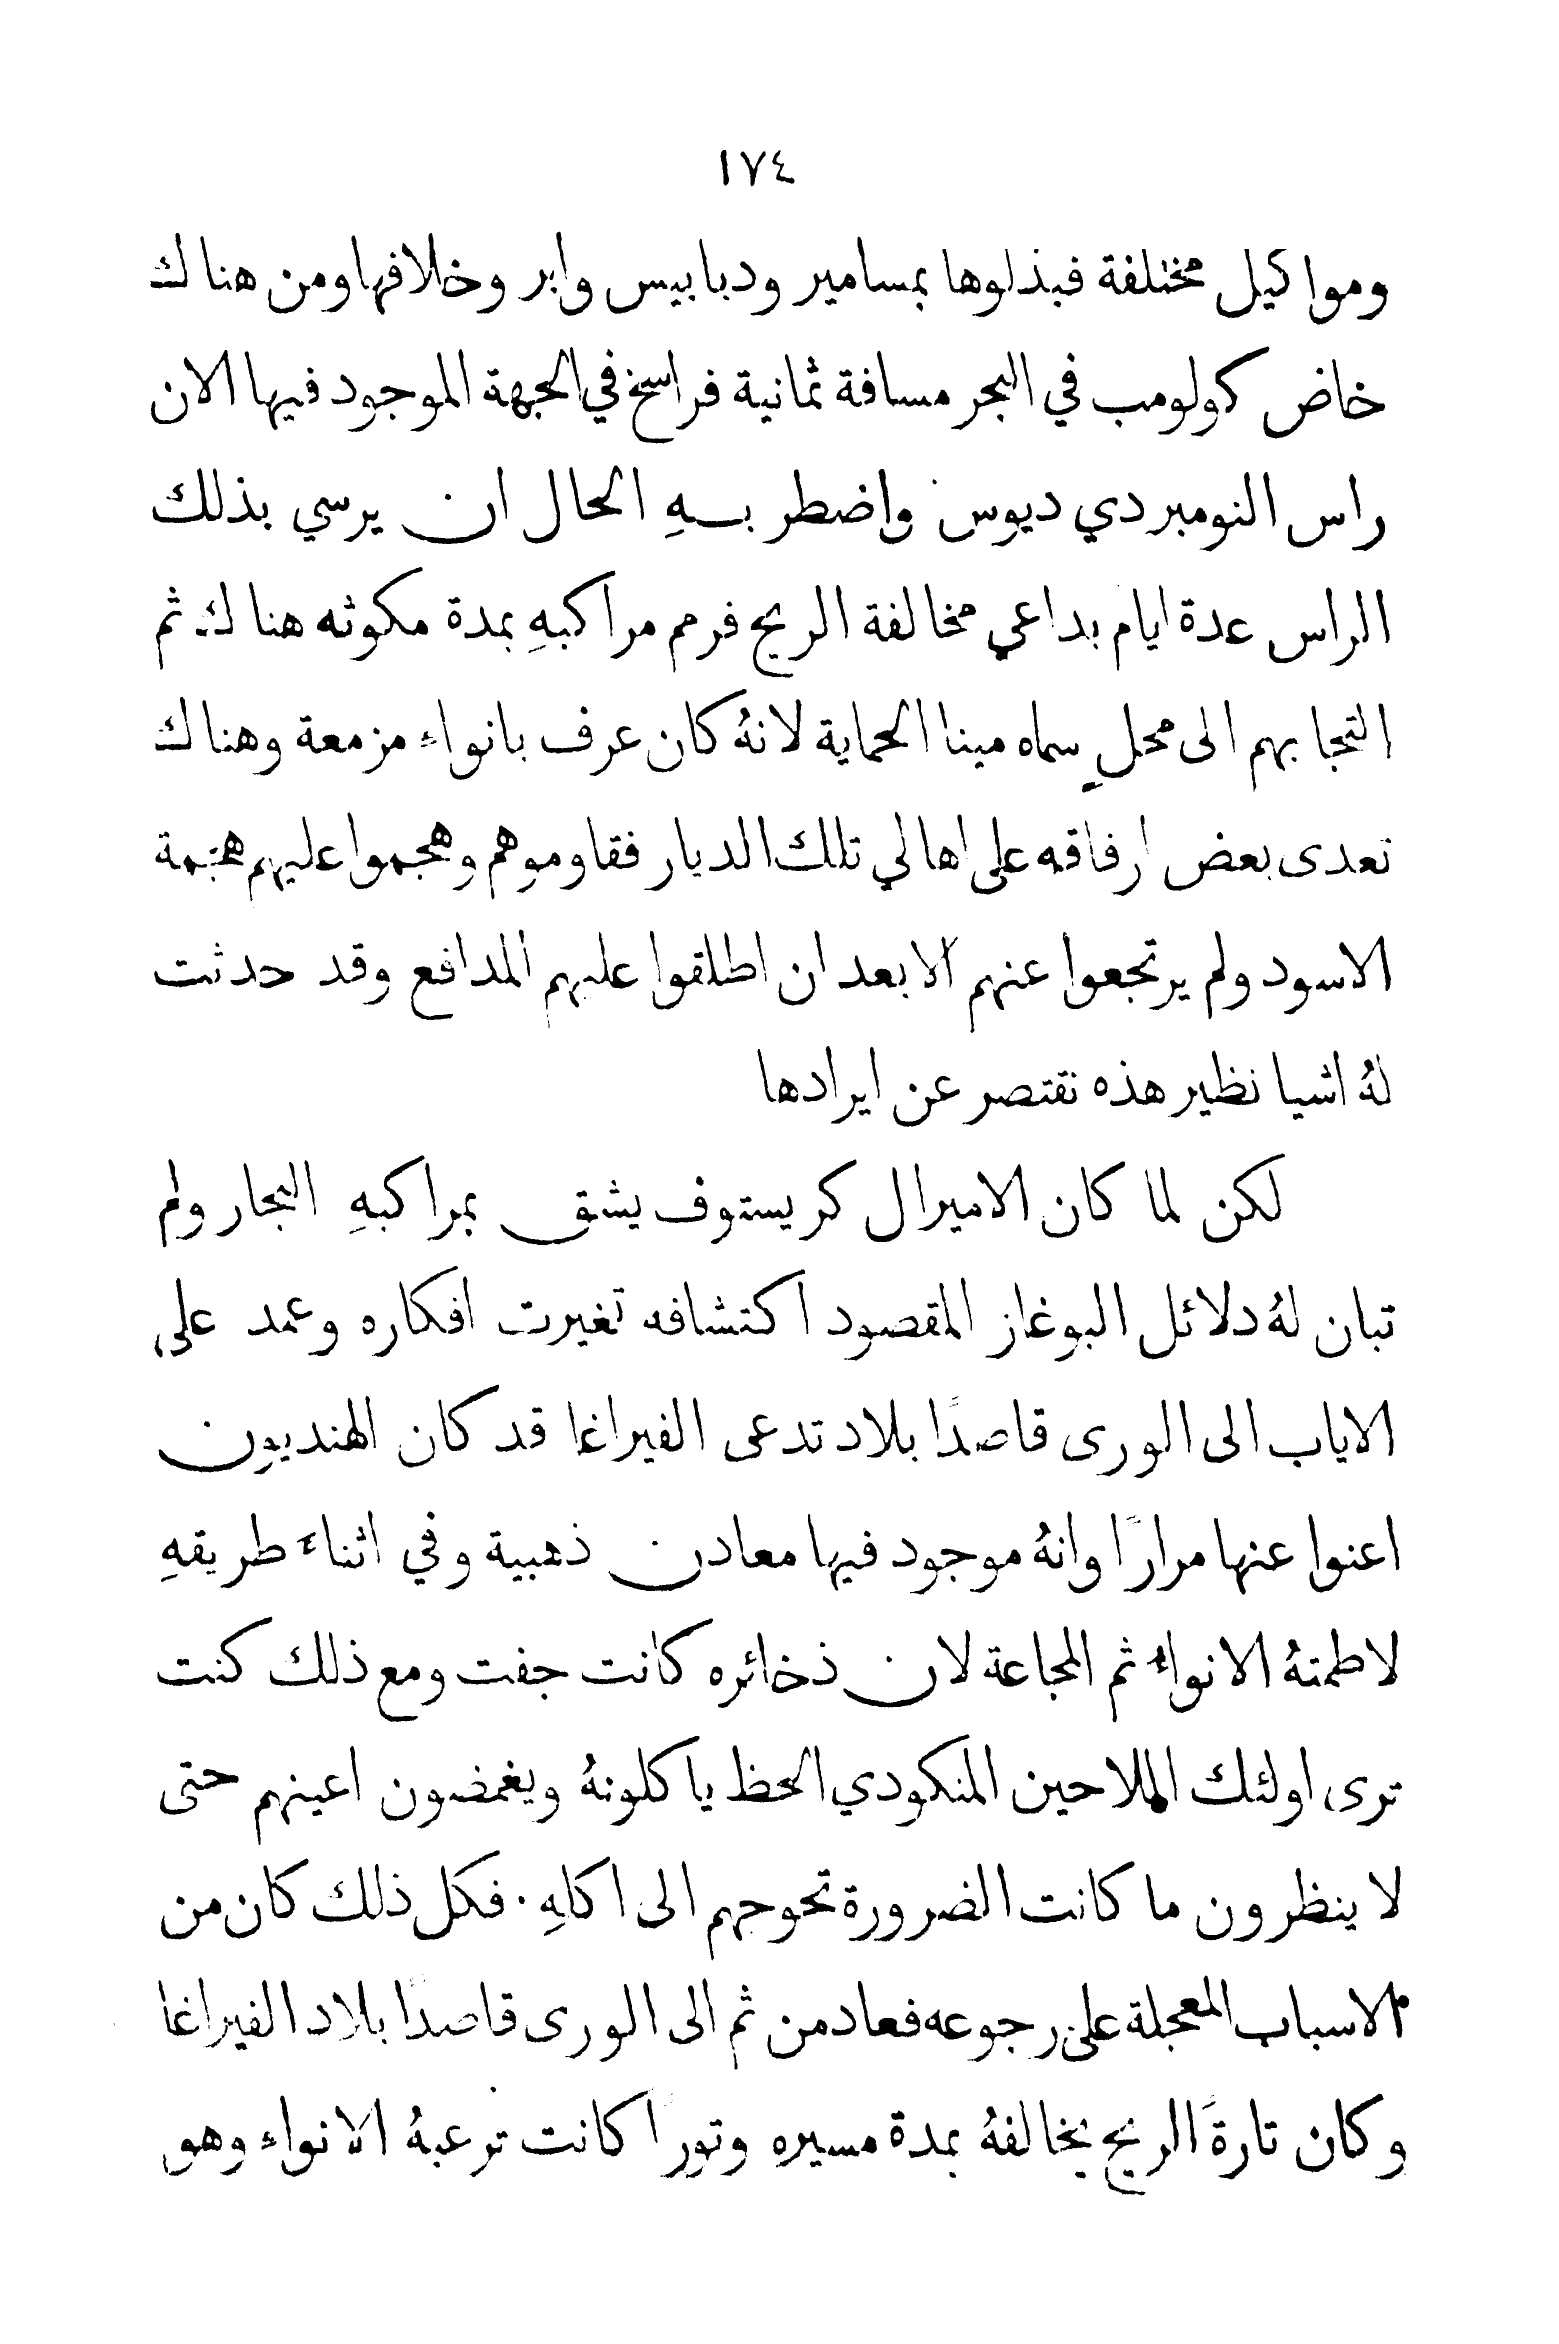 ١٧٤
ومواكيل مختلفة فبذلوها بمسامير ودبابيس وابر وخلافها ومن هناك
خاض كولومب في البحر مسافة ثمانية فراسخ في الجهة الموجود فيها الان
راس النومبر دي ديوس واضطر بهِ الحال ان يرسي بذلك
الراس عدة ايام بداعي مخالفة الريح فرمم مراكبهِ بمدة مكوثه هناك ثم
التجا بهم الى محلٍ سماه مينا الحماية لانهُ كان عرف بانواءِ مزمعة وهناك
تعدى بعض ارفاقه على اهالي تلك الديار فقاوموهم وهجموا عليهم هجمة
الاسود ولم يرتجعوا عنهم الا بعد ان اطلقوا عليهم المدافع وقد حدثت
لهُ اشيا نظير هذه نقتصر عن ايرادها
لكن لما كان الاميرال كريستوف يشق بمراكبهِ البحار ولم
تبان لهُ دلائل البوغاز المقصود اكتشافه تغيرت افكاره وعمد على
الاياب الى الورى قاصدًا بلاد تدعى الفيراغا قد كان الهنديون
اعنوا عنها مرارًا وانهُ موجود فيها معادن ذهبية وفي اثناءَ طريقهِ
لاطمتهُ الانواءُ ثم المجاعة لان ذخائره كانت جفت ومع ذلك كنت
ترى اولئك الملاحين المنكودي الحظ ياكلونهُ ويغمضون اعينهم حتى
لا ينظرون ما كانت الضرورة تحوجهم الى اكلهِ . فكل ذلك كان من
الاسباب المعجلة على رجوعه فعاد من ثم الى الورى قاصدًا بلاد الفيراغا
وكان تارةً الريح يخالفهُ بمدة مسيره وتورًا كانت ترعبهُ الانواءِ وهو